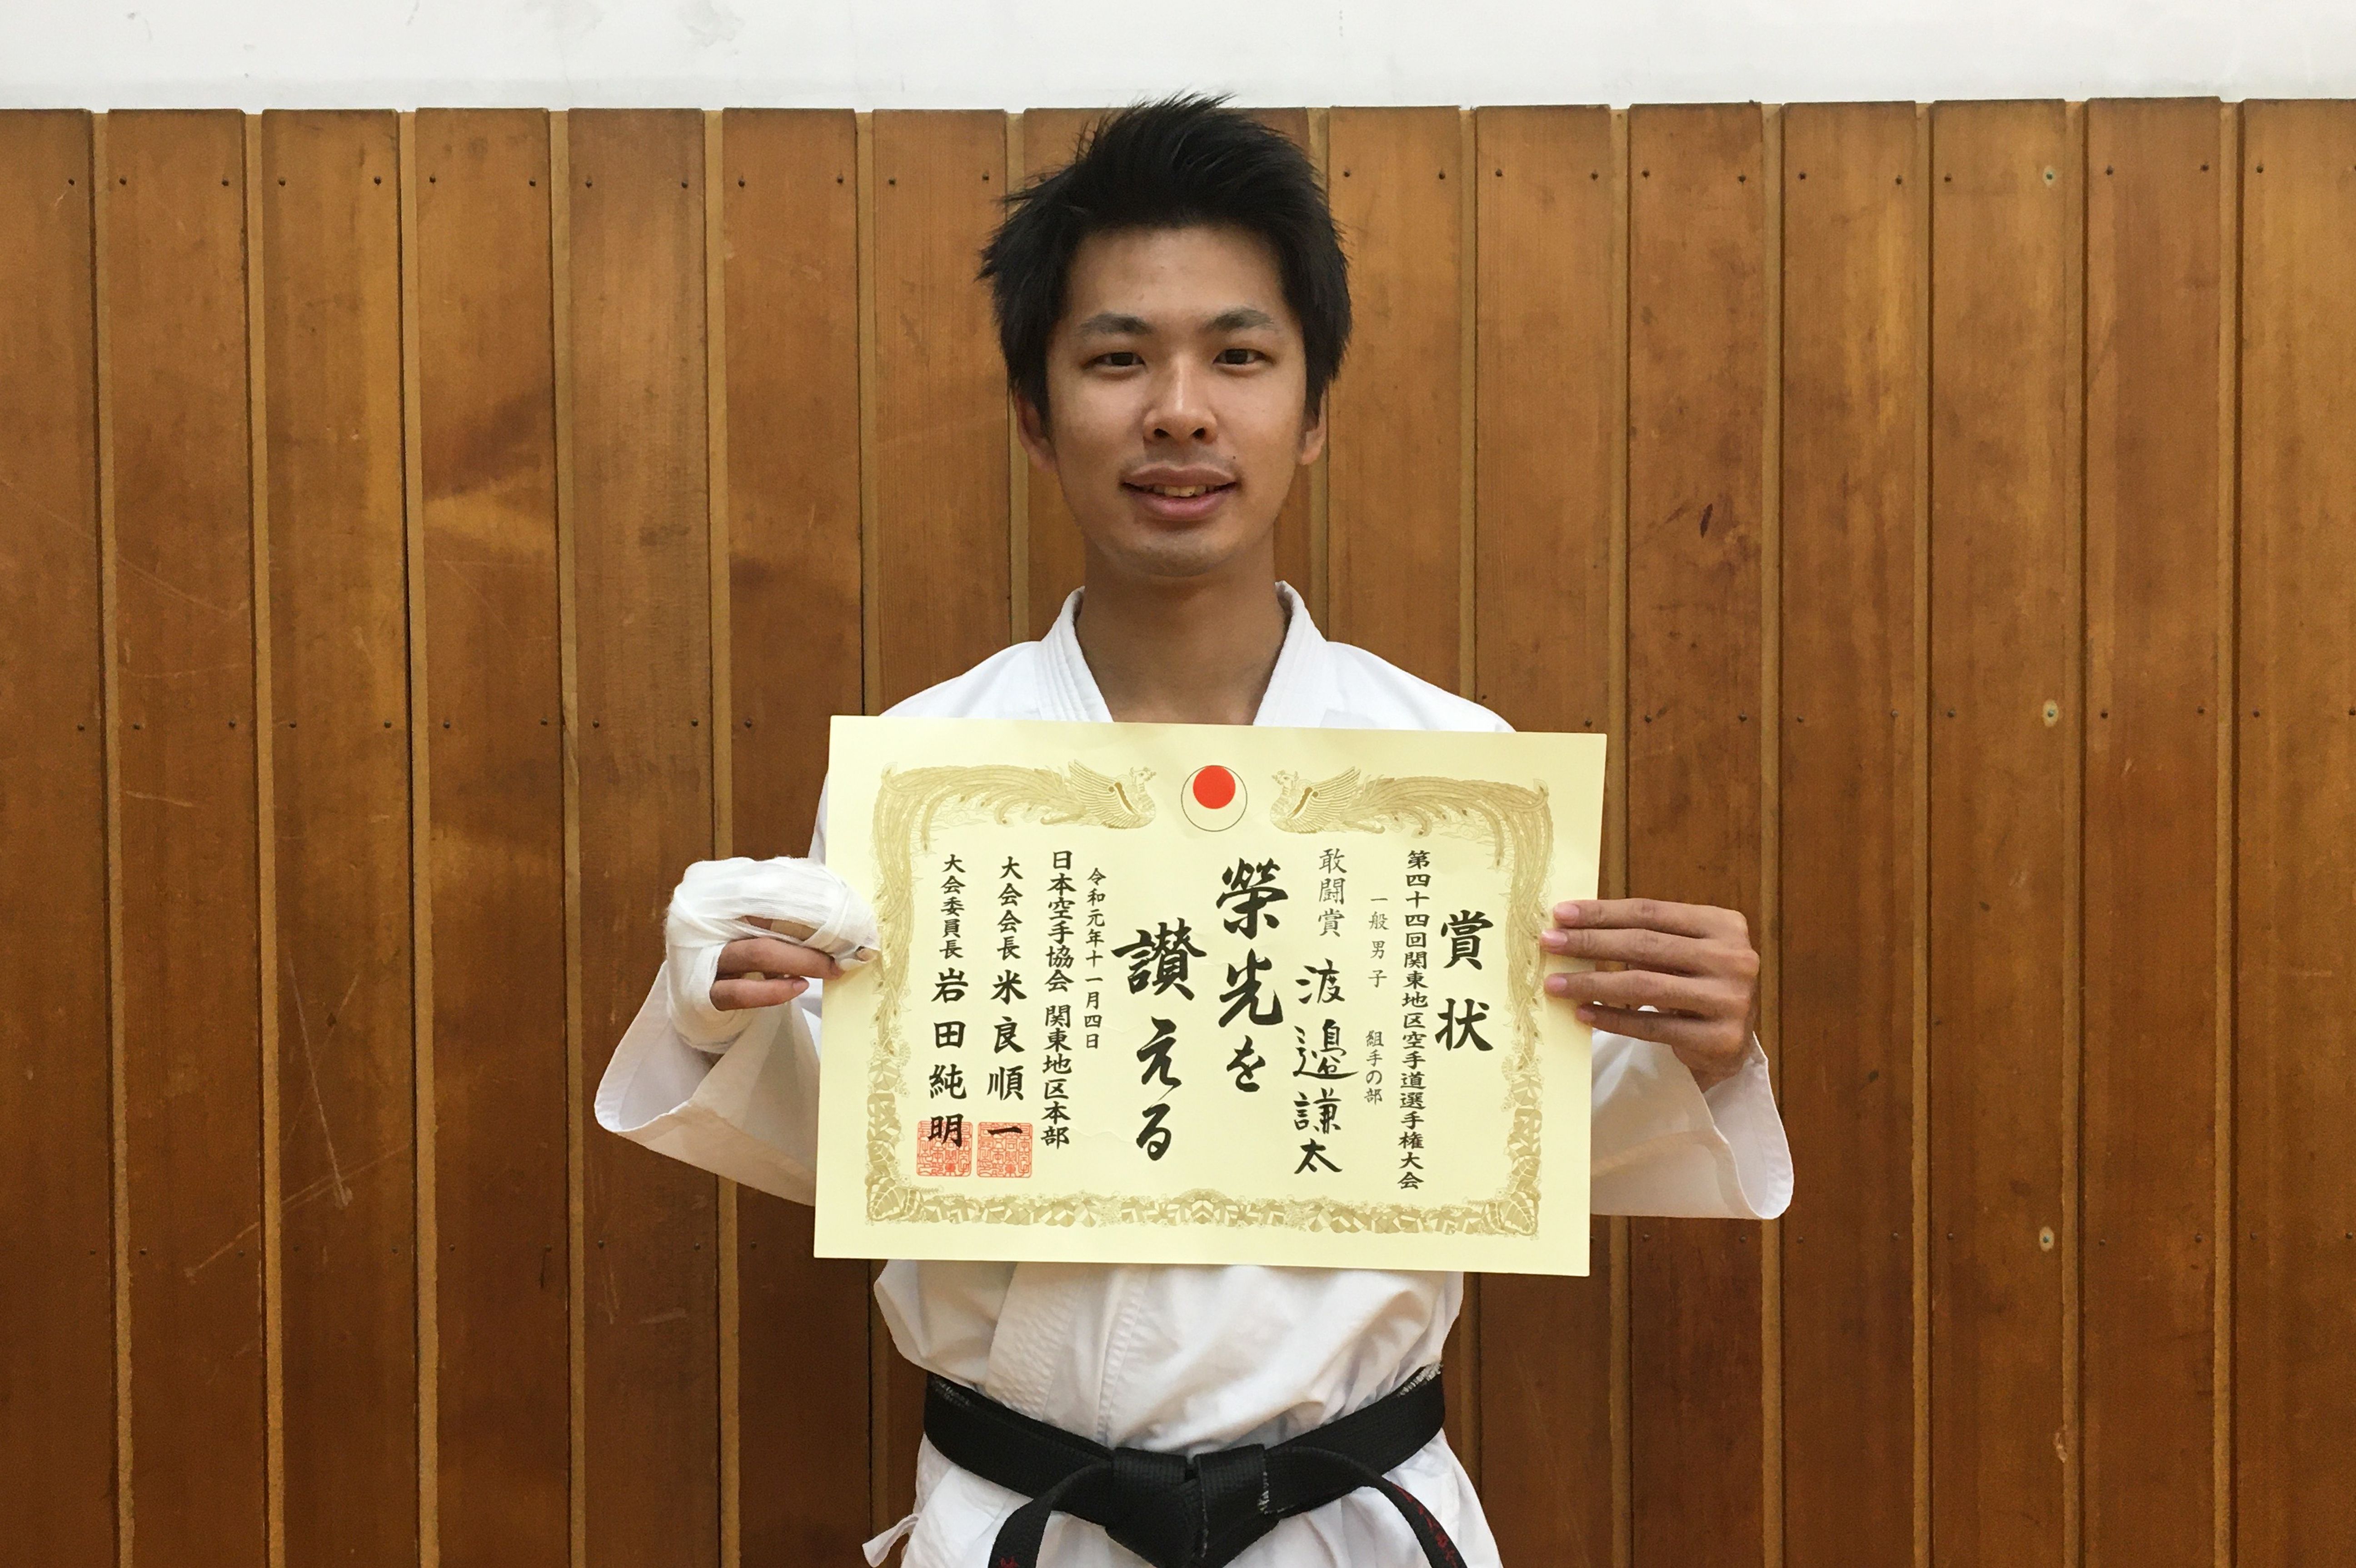 賞状
第四十四回関東地区空手道選手権大会
一般男子 組手の部
敢闘賞 渡邉謙太
榮光を
讃える
令和元年十一月四日
日本空手協会 関東地区本部
大会会長 米良順一
大会委員長 岩田純明